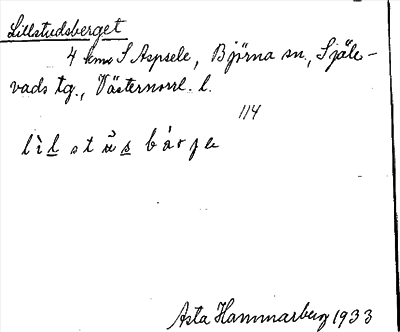 Lillstudsberget
4 km S Aspsele, Björna sn., Själe-
vads tg., Västernorrl. l.
114
Asta Hammarberg 1933